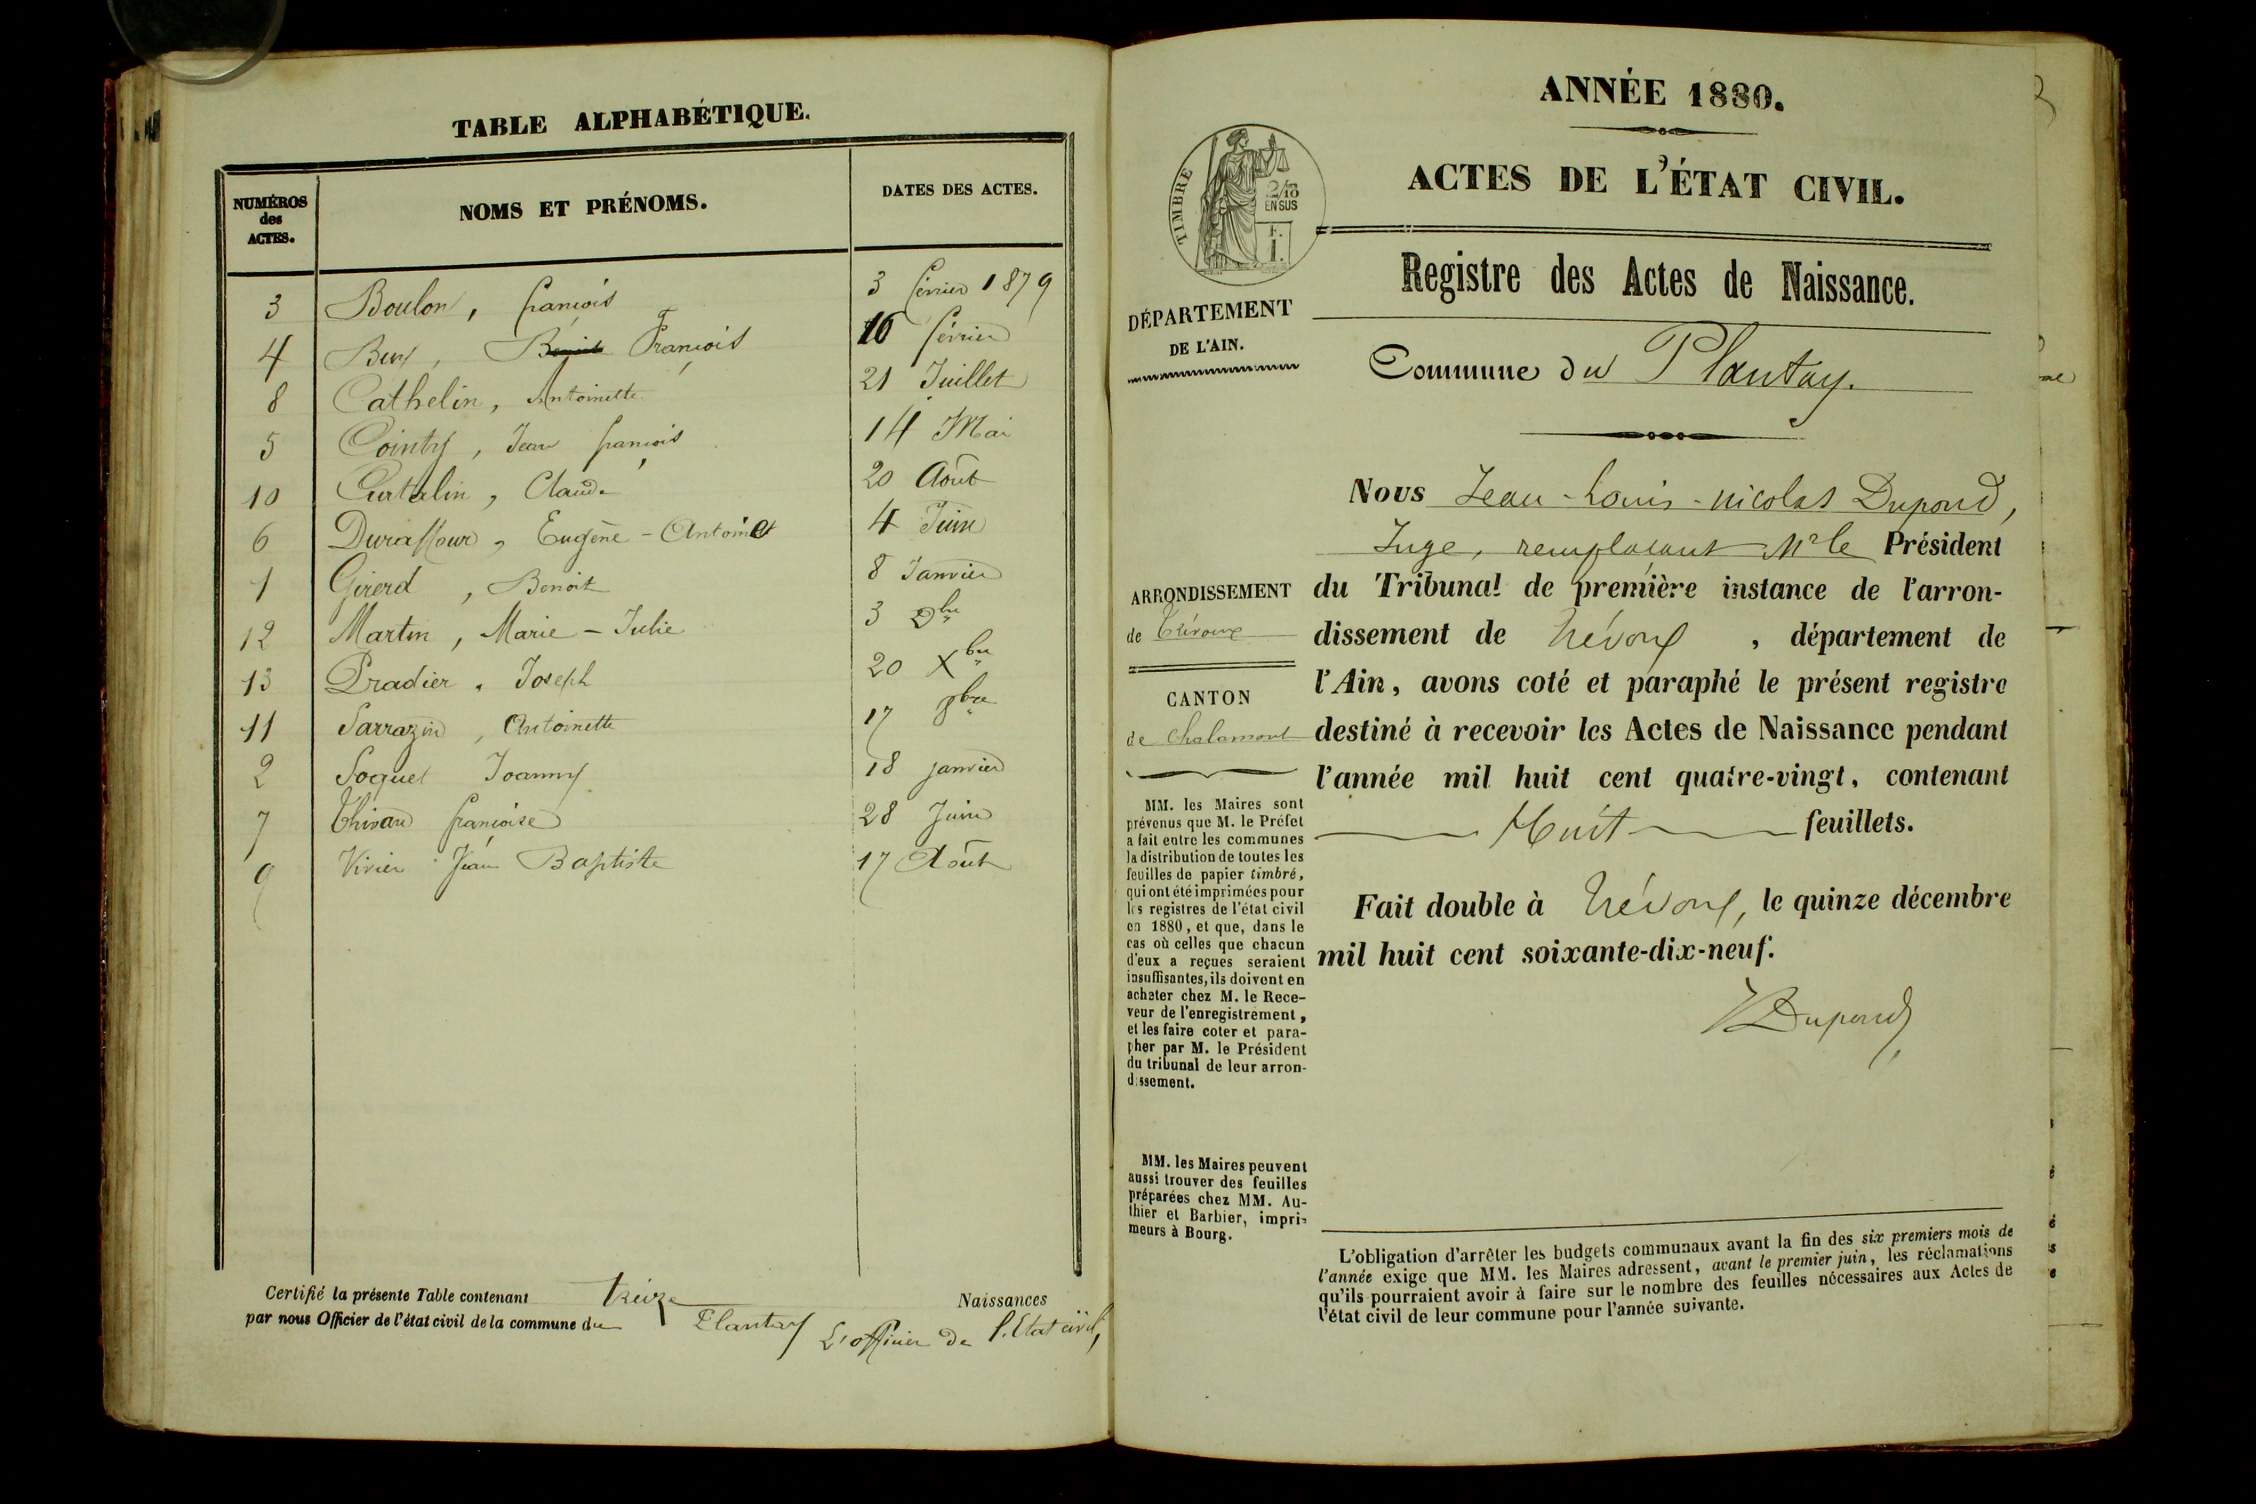 TABLE ALPHABÉTIQUE.
NUMÉROS des ACTES.
NOMS ET PRÉNOMS.
DATES DES ACTES.
3 Boulon, françois 3 février 1879
4 François 10 février
8 Cathelin, Antoinette 21 Juillet
5 Cointy, Jean françois 14 Mai
10 Curtelin, Claude 20 Août
6 Duraffour, Eugène-Antoine 4 Juin
1 Girerd, Benoit 8 Janvier
12 Martin, Marie-Julie 3 9bre
13 Pradier, Joseph 20 Xbre
11 Sarrazin, Antoinette 17 8bre
2 Soquet Joanny 18 janvier
7 françoise 28 Juin
9 Vivier Jean Baptiste 17 Août
Certifié la présente Table contenant treize Naissances
par nous Officier de l'état civil de la commune du Plantay L'officier de l'Etat civil,
ANNÉE 1880.
ACTES DE L'ÉTAT CIVIL.
TIMBRE
2/10
EN SUS
F.
1.
Registre des Actes de Naissance.
DÉPARTEMENT
DE L'AIN.
Commune du Plantay.
Nous Jean-Louis-nicolas Dupond,
Juge, remplaçant Mr le Président
du Tribunal de première instance de l'arron-
dissement de Trévoux, département de
l'Ain, avons coté et paraphé le présent registre
destiné à recevoir les Actes de Naissance pendant
l'année mil huit cent quatre-vingt, contenant
Huit feuillets.
Fait double à Trévoux, le quinze décembre
mil huit cent soixante-dix-neuf.
Dupond
ARRONDISSEMENT
de Trévoux
CANTON
de Chalamont
MM. les Maires sont
prévenus que M. le Préfet
a fait entre les communes
la distribution de toutes les
feuilles de papier timbré,
qui ont été imprimées pour
les registres de l'état civil
en 1880, et que, dans le
cas où celles que chacun
d'eux a reçues seraient
insuffisantes, ils doivent en
acheter chez M. le Rece-
veur de l'enregistrement,
et les faire coter et para-
pher par M. le Président
du tribunal de leur arron-
dissement.
MM. les Maires peuvent
aussi trouver des feuilles
préparées chez MM. Au-
thier et Barbier, impri-
meurs à Bourg.
L'obligation d'arrêter les budgets communaux avant la fin des six premiers mois de
l'année exige que MM. les Maires adressent, avant le premier juin, les réclamations
qu'ils pourraient avoir à faire sur le nombre des feuilles nécessaires aux Actes de
l'état civil de leur commune pour l'année suivante.